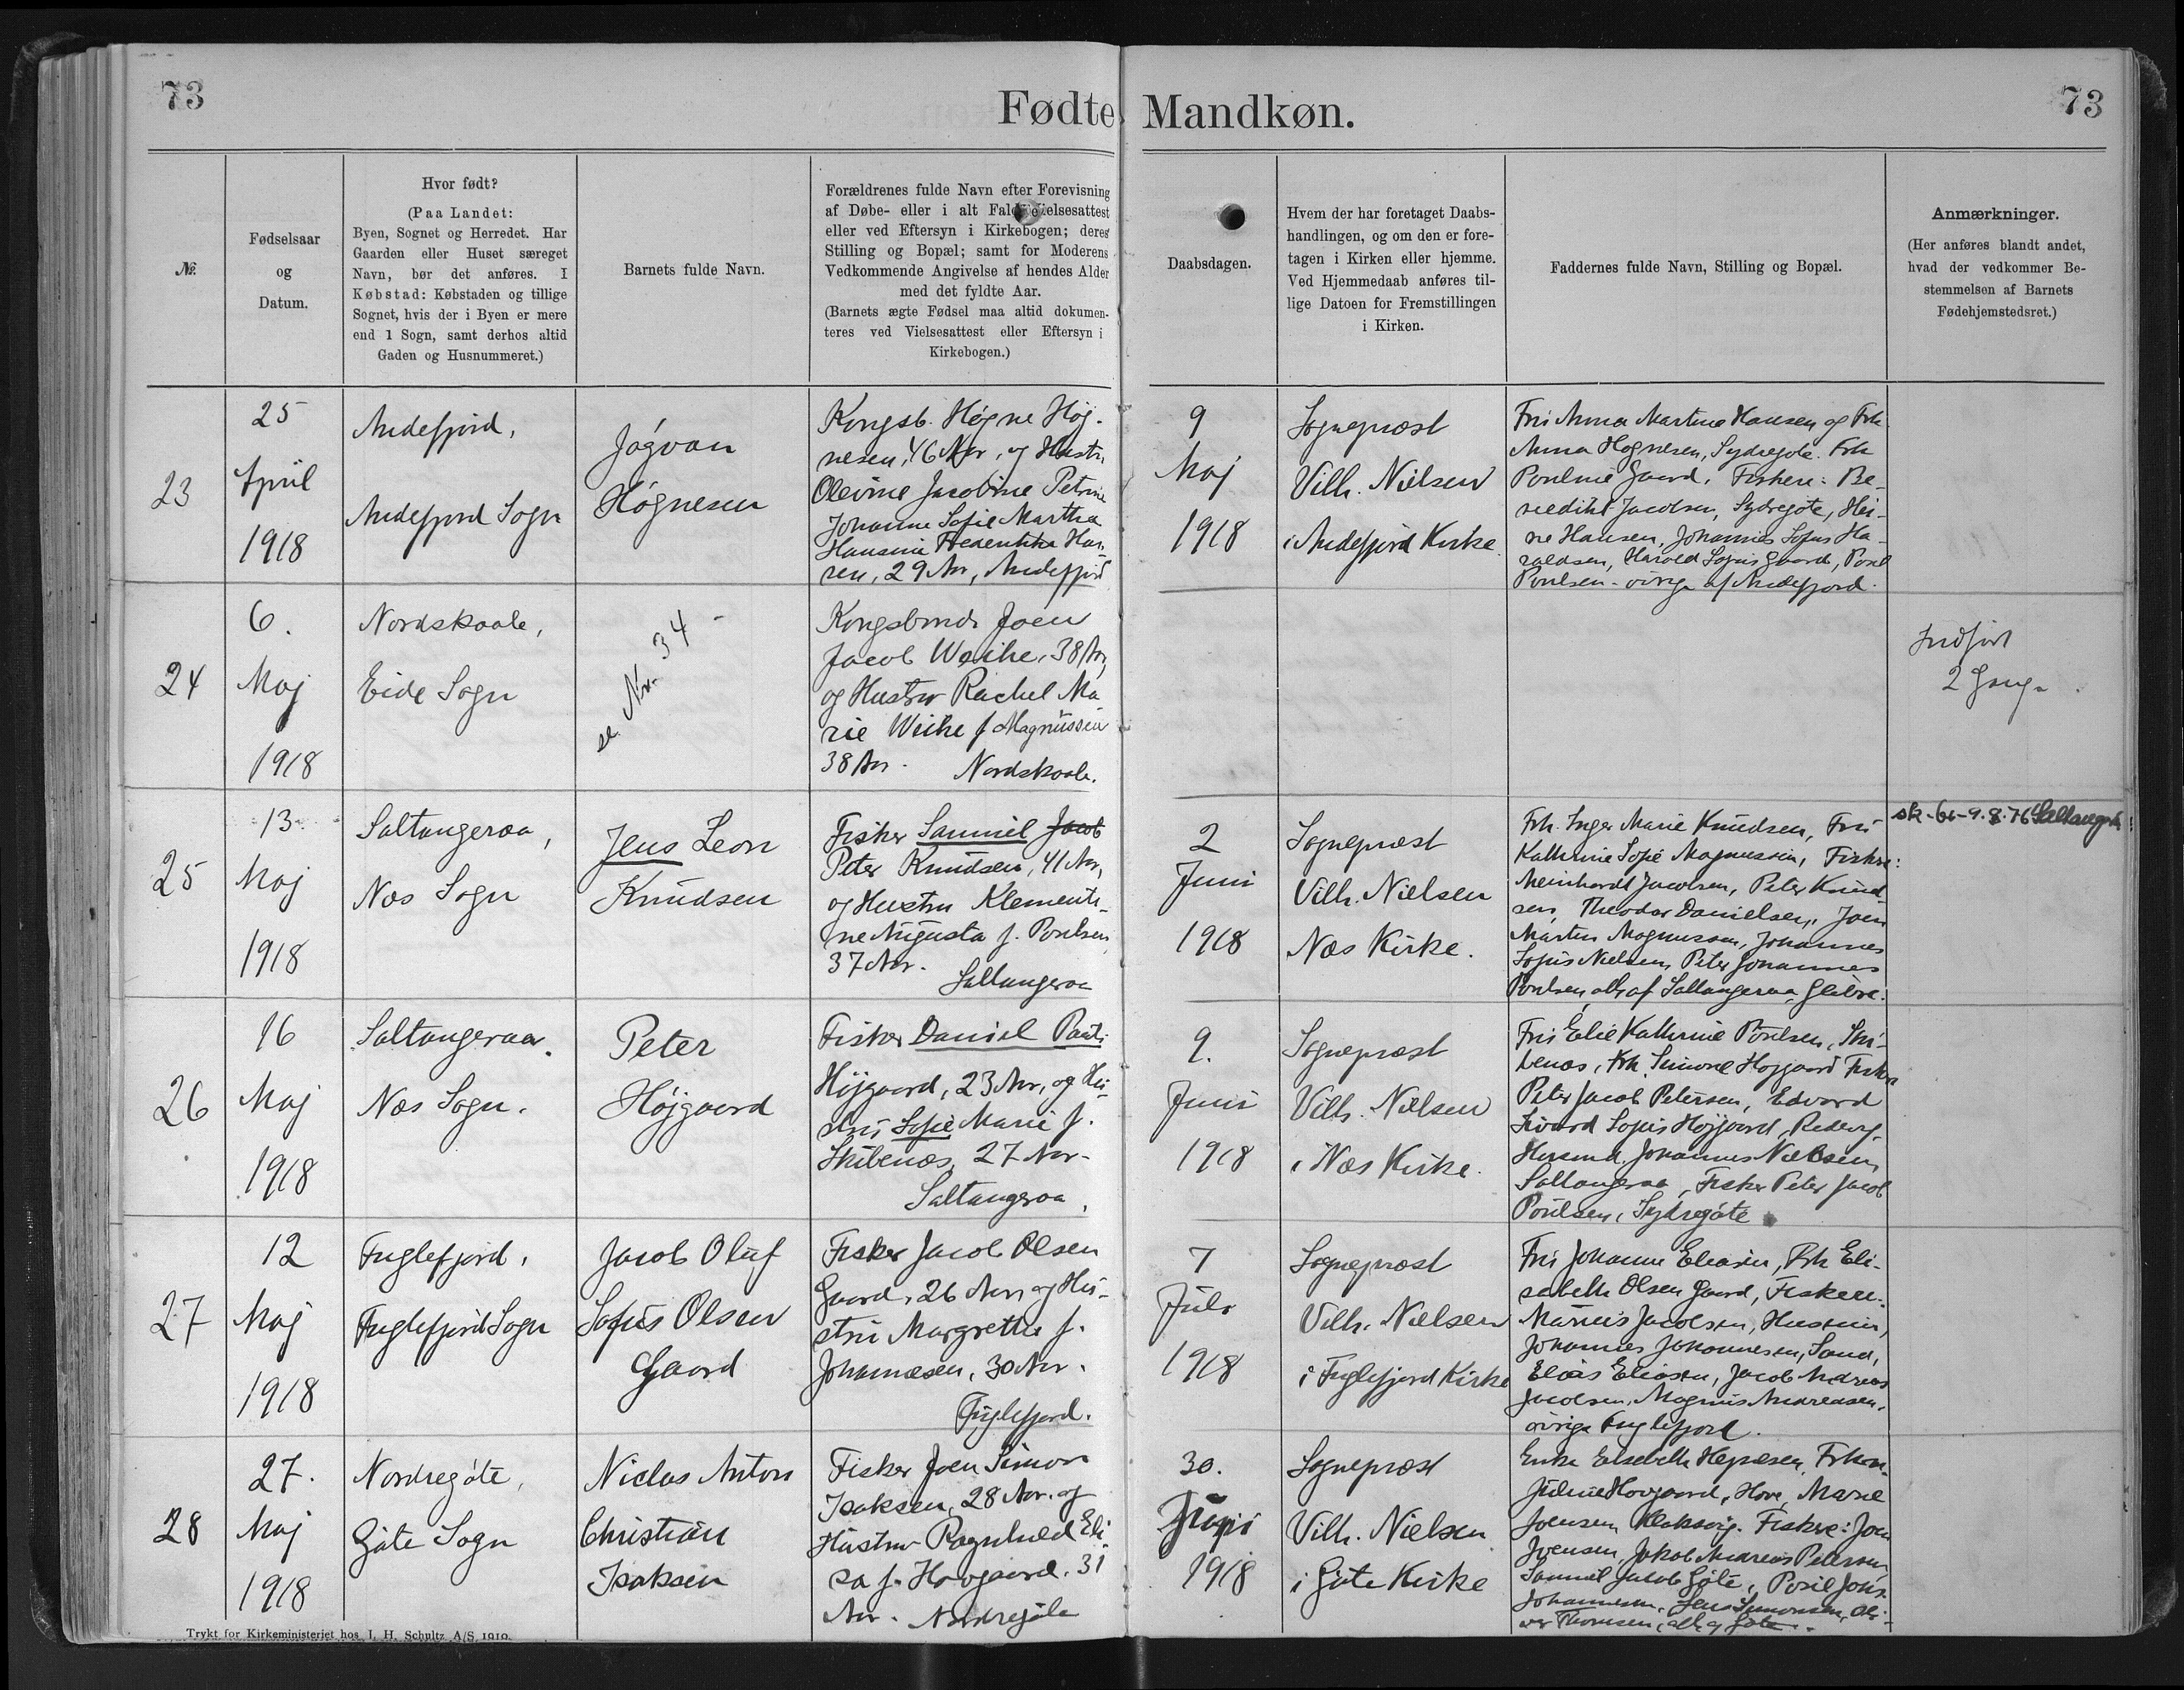 73
Fødte Mandkøn.
73
№.
Fødselsaar
og
Datum.
Hvor født?
(Paa Landet:
Byen, Sognet og Herredet. Har
Gaarden eller Huset særeget
Navn, bør det anføres. I
Købstad: Købstaden og tillige
Sognet, hvis der i Byen er mere
end 1 Sogn, samt derhos altid
Gaden og Husnummeret.)
Barnets fulde Navn.
Forældrenes fulde Navn efter Forevisning
af Døbe- eller i alt Fald Vielsesattest
eller ved Eftersyn i Kirkebogen; deres
Stilling og Bopæl; samt for Moderens
Vedkommende Angivelse af hendes Alder
med det fyldte Aar.
(Barnets ægte Fødsel maa altid dokumen-
teres ved Vielsesattest eller Eftersyn i
Kirkebogen.)
Daabsdagen.
Hvem der har foretaget Daabs-
handlingen, og om den er fore-
tagen i Kirken eller hjemme.
Ved Hjemmedaab anføres til-
lige Datoen for Fremstillingen
i Kirken.
Faddernes fulde Navn, Stilling og Bopæl.
Anmærkninger.
(Her anføres blandt andet,
hvad der vedkommer Be-
stemmelsen af Barnets
Fødehjemstedsret.)
23
25
April
1918
Andefjord,
Andefjord Sogn
Jógvan
Høgnesen
Kongsb. Høgne Høg-
nesen, 46 Aar, og Hustru
Olevine Jacobine Petrine
Johanne Sofie Martha
Hansine Frederikke Han-
sen, 29 Aar, Andefjord
9
Maj
1918
Sognepræst
Vilh. Nielsen
i Andefjord Kirke
Fru Anna Martine Hansen og Frk.
Anna Høgnesen, Sydregøte. Frk
Pouline Gaard, Fiskere: Be-
nedikt Jacobsen, Sydregøte, Hei-
ne Hansen, Johannes Sofus Ha-
raldsen, Harald Sofus Gaard, Poul
Poulsen - øvrige af Andefjord.
24
6.
Maj
1918
Nordskaale,
Eide Sogn
se Nr. 34 -
Kongsbonde Joen
Jacob Weihe, 38 Aar,
og Hustru Rachel Ma
rie Weihe f. Magnussen
38 Aar. Nordskaale.
Indført
2 Gange.
25
13.
Maj
1918
Saltangeraa,
Næs Sogn
Jens Leon
Knudsen
Fisker Samuel Jacob
Peter Knudsen, 41 Aar,
og Hustru Klementi-
ne Augusta f. Poulsen,
37 Aar.
Saltangeraa
2
Juni
1918
Sognepræst
Vilh. Nielsen
Næs Kirke.
Frk. Inger Marie Knudsen, Fru
Kathrine Sofie Magnussen, Fiskere:
Meinhardt Jacobsen, Peter Knud-
sen, Theodor Danielsen, Joen
Martin Magnussen, Johannes
Sofus Nielsen, Peter Johannes
Poulsen, alle af Saltangeraa,
26
16
Maj
1918
Saltangeraa.
Næs Sogn.
Peter
Højgaard
Fisker Daniel Pauli
Højgaard, 23 Aar, og Hu-
stru Sofie Marie f.
Skibenæs, 27 Aar.
Saltangeraa,
9.
Juni
1918
Sognepræst
Vilh. Nielsen
i Næs Kirke.
Fru Elie Kathrine Poulsen, Ski-
benæs, Frk. Simone Højgaard Fiskere
Peter Jacob Petersen, Edvard
Sofus Højgaard,
Johannes Nielsen,
Saltangeraa, Fisker Peter Jacob
Poulsen, Sydregøte
27
12
Maj
1918
Fuglefjord,
Fuglefjord Sogn
Jacob Oluf
Sofus Olsen
Gaard
Fisker Jacob Olsen
Gaard, 26 Aar, og Hu-
stru Margrethe f.
Johannesen, 30 Aar.
Fuglefjord.
7
Juli
1918
Sognepræst
Vilh. Nielsen
i Fuglefjord Kirke
Fru Johanne Eliasen, Frk. Eli-
sabeth Olsen Gaard, Fiskere:
Marius Jacobsen,
Johannes Johannesen, Sand,
Elias Eliasen, Jacob Andreas
Jacobsen, Magnus Andreasen,
øvrige Fuglefjord.
28
27.
Maj
1918
Nordregøte,
Gøte Sogn
Niclas Anton
Christian
Isaksen
Fisker Joen Simon
Isaksen, 28 Aar, og
Hustru Ragnhild Eli
sa f. Hovgaard, 31
Aar. Nordregøte
30.
Juni
1918
Sognepræst
Vilh. Nielsen
i Gøte Kirke
Enke Elsebeth
Hovgaard, Hove, Marie
Joensen, Klaksvig. Fiskere: Joen
Joensen, Jakob Andreas Petersen,
Samuel Jacob Gøte, Poul
Johannesen, Jens Simonsen,
Thomsen, alle af Gøte.
Trykt for Kirkeministeriet hos J. H. Schultz A/S. 1910.